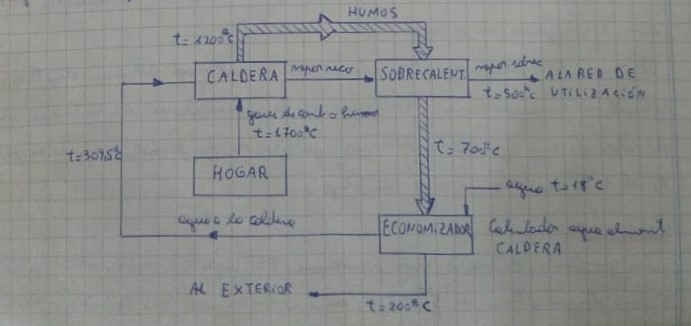 HUMOS
t= 1200°C
CALDERA
vapor seco
SOBRECALENT.
vapor
A LA RED DE
t= 500°C
UTILIZACIÓN
gases de comb o humos
t=1700°C
t=
t= 700°C
HOGAR
agua t=18°C
agua a la caldera
ECONOMIZADOR
Calentador agua aliment
CALDERA
AL EXTERIOR
t=200°C